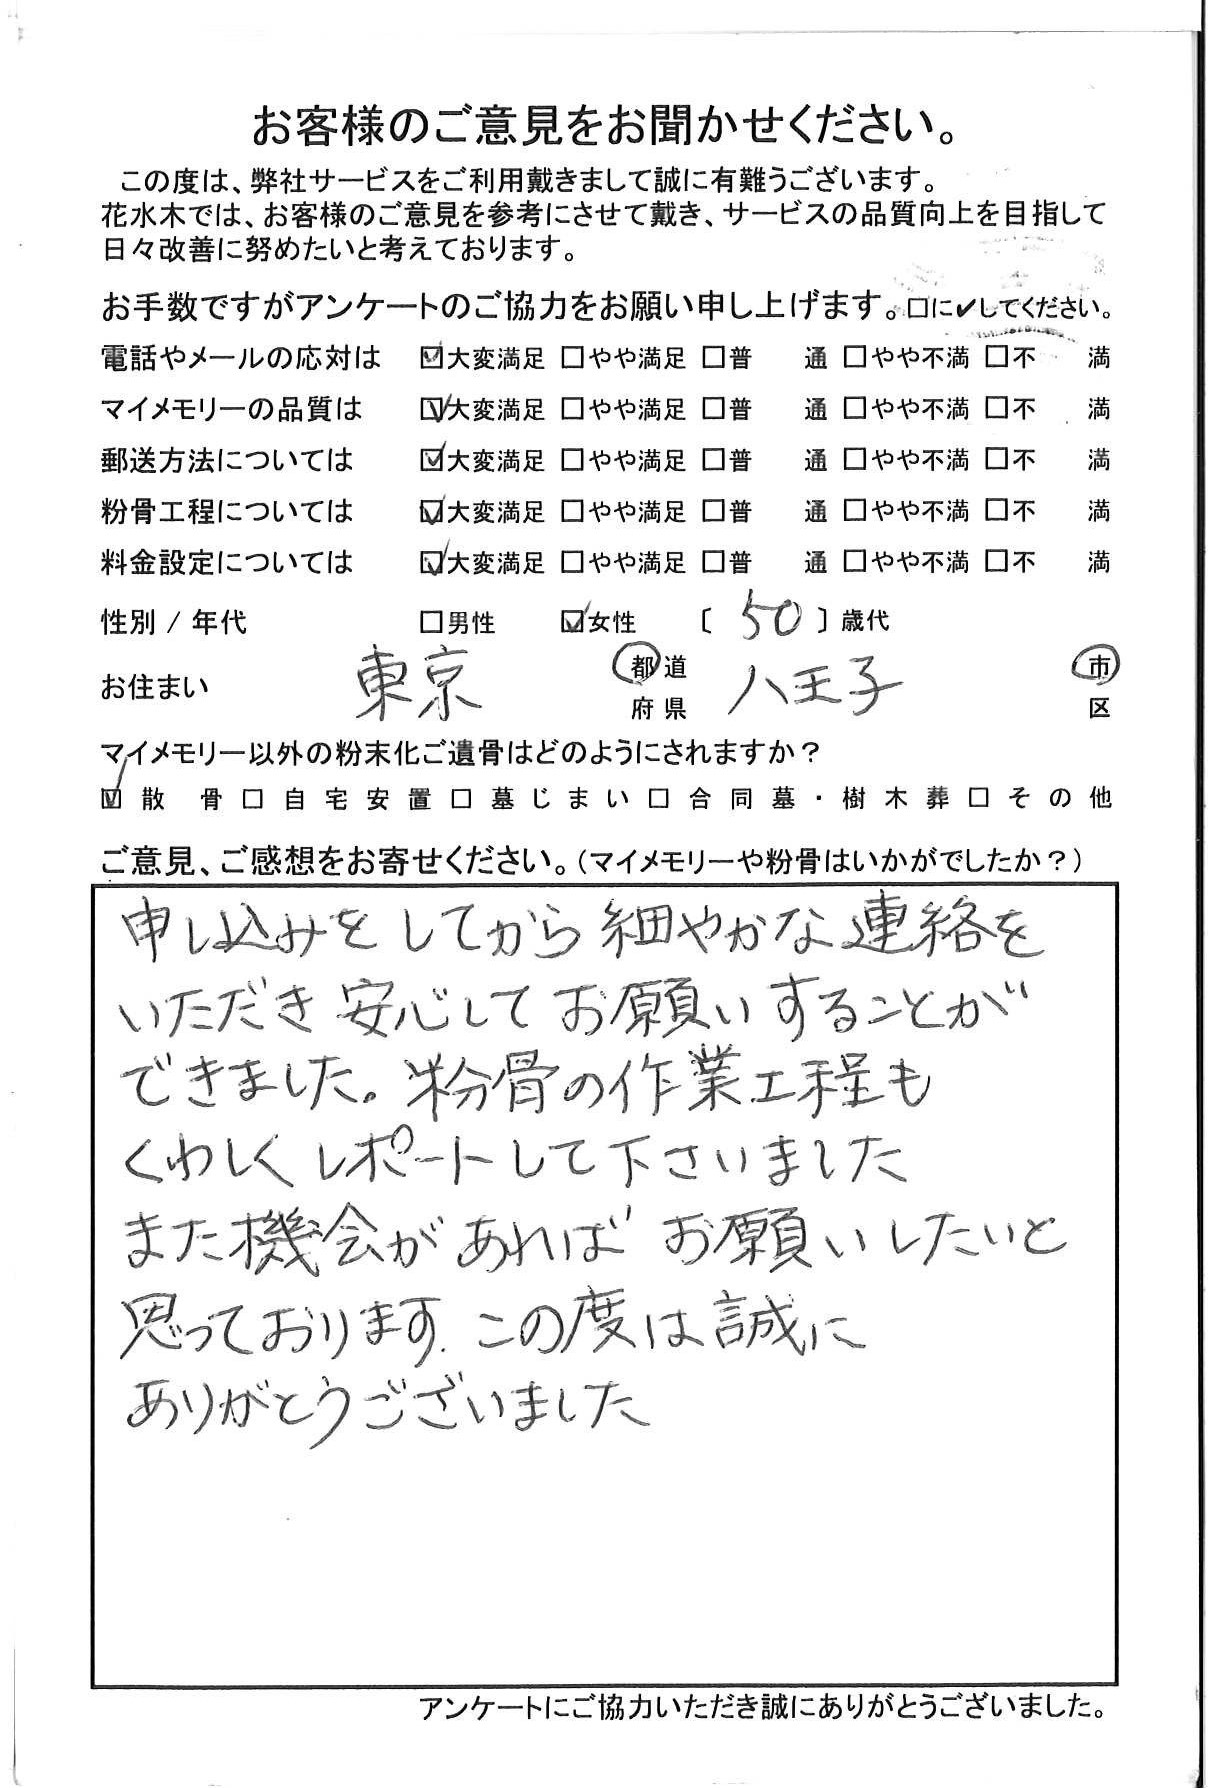 お客様のご意見をお聞かせください。
この度は、弊社サービスをご利用戴きまして誠に有難うございます。
花水木では、お客様のご意見を参考にさせて戴き、サービスの品質向上を目指して
日々改善に努めたいと考えております。
お手数ですがアンケートのご協力をお願い申し上げます。□に✔してください。
電話やメールの応対は ☑大変満足 □やや満足 □普 通 □やや不満 □不 満
マイメモリーの品質は ☑大変満足 □やや満足 □普 通 □やや不満 □不 満
郵送方法については ☑大変満足 □やや満足 □普 通 □やや不満 □不 満
粉骨工程については ☑大変満足 □やや満足 □普 通 □やや不満 □不 満
料金設定については ☑大変満足 □やや満足 □普 通 □やや不満 □不 満
性別 / 年代 □男性 ☑女性 〔 50 〕歳代
お住まい 東京 都道府県 八王子 市区
マイメモリー以外の粉末化ご遺骨はどのようにされますか？
☑散 骨 □自宅安置 □墓じまい □合同墓・樹木葬 □その他
ご意見、ご感想をお寄せください。（マイメモリーや粉骨はいかがでしたか？）
申し込みをしてから細やかな連絡を
いただき安心してお願いすることが
できました。粉骨の作業工程も
くわしくレポートして下さいました
また機会があればお願いしたいと
思っております. この度は誠に
ありがとうございました
アンケートにご協力いただき誠にありがとうございました。